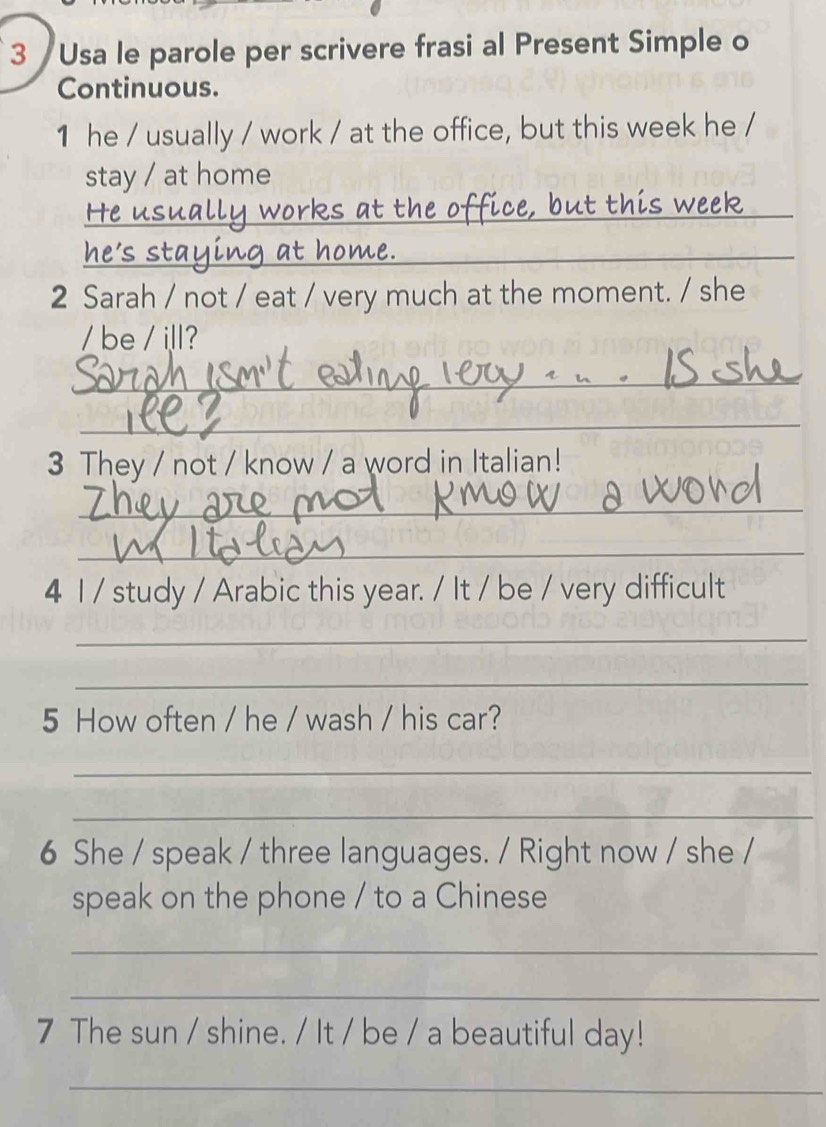 3 Usa le parole per scrivere frasi al Present Simple o
Continuous.
1 he / usually / work / at the office, but this week he /
stay / at home
He usually works at the office, but this week
he's staying at home.
2 Sarah / not / eat / very much at the moment. / she
/ be / ill?
Sarah isn't eating very . . . . Is she
ill?
3 They / not / know / a word in Italian!
They are not know a word
in Italian
4 I / study / Arabic this year. / It / be / very difficult
5 How often / he / wash / his car?
6 She / speak / three languages. / Right now / she /
speak on the phone / to a Chinese
7 The sun / shine. / It / be / a beautiful day!